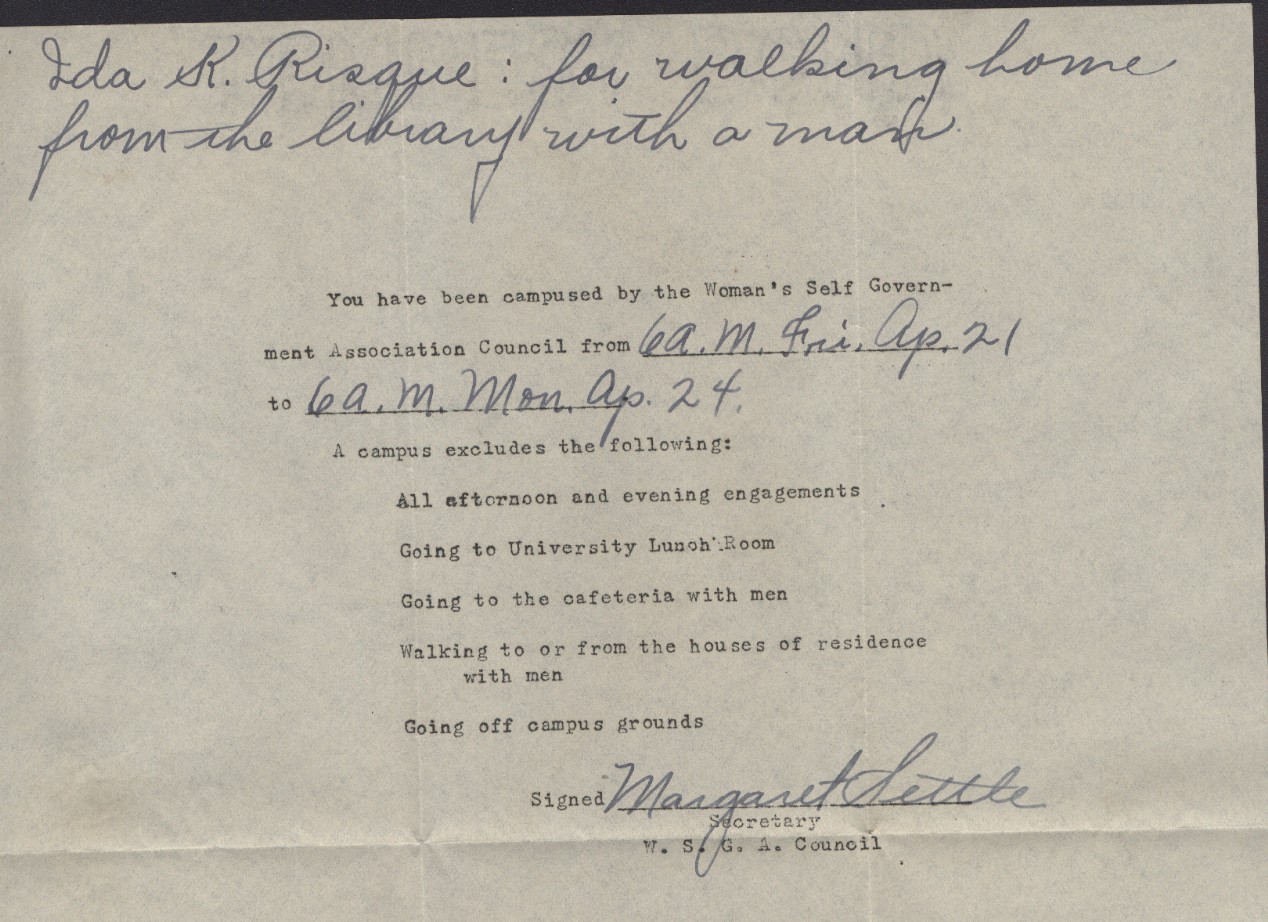 Ida K. Risque : for walking home
from the library with a man.
You have been campused by the Woman's Self Govern-
ment Association Council from 6 A.M. Fri. Ap. 21
to 6 A.M. Mon. Ap. 24.
A campus excludes the following:
All afternoon and evening engagements
Going to University Lunch Room
Going to the cafeteria with men
Walking to or from the houses of residence
with men
Going off campus grounds
Signed Margaret Settle
Secretary
W. S. G. A. Council